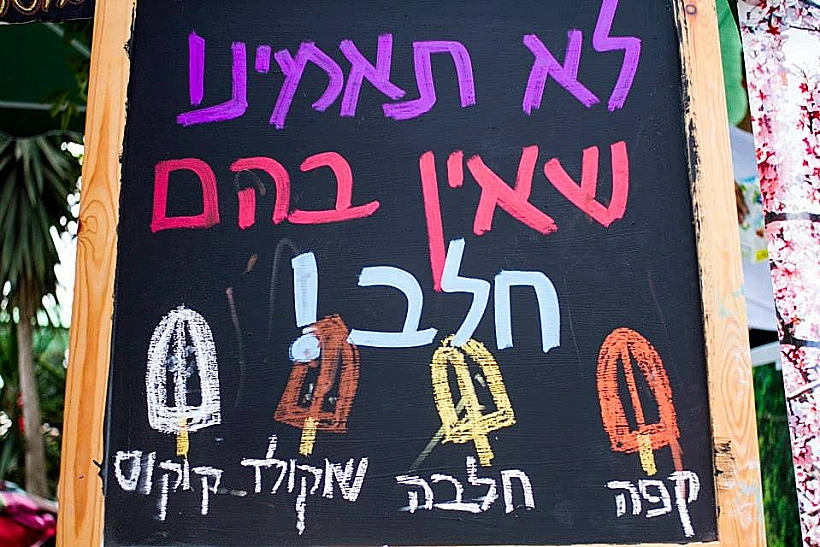 לא תאמינו
שאין בהם
חלב!
קפה חלבה שוקולד קוקוס